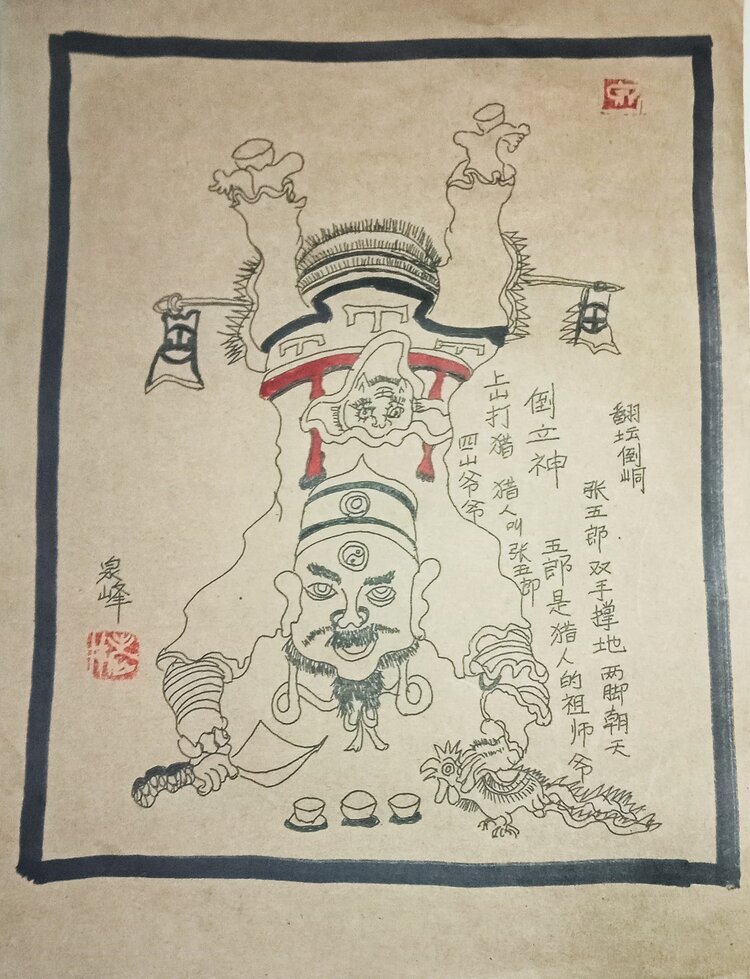 翻坛倒峒
张五郎 双手撑地 两脚朝天
倒立神
五郎是猎人的祖师爷
上山打猎 猎人叫张五郎
四山爷爷
泉峰